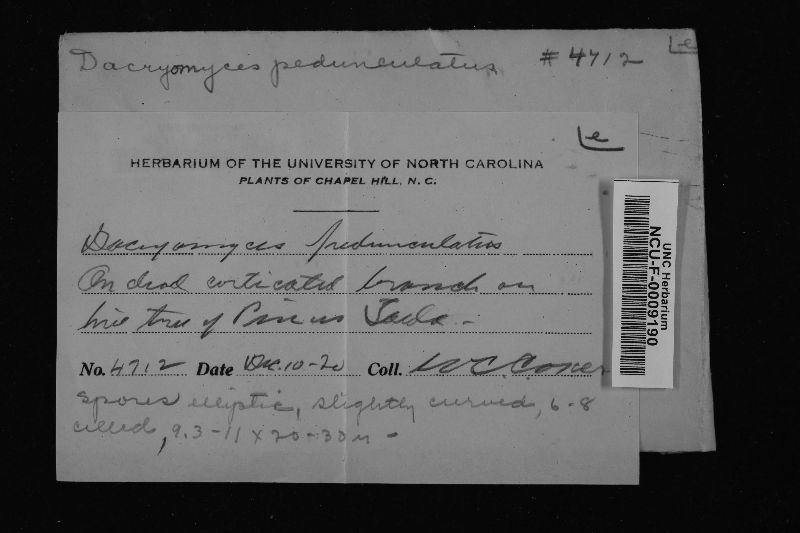 Dacryomyces pedunculatus # 4712
Le
Le
HERBARIUM OF THE UNIVERSITY OF NORTH CAROLINA
PLANTS OF CHAPEL HILL, N. C.
Dacryomyces pedunculatus
On dead corticated branch on
live tree of Pinus Taeda -
No. 4712 Date Dec. 10-20 Coll. W C Coker
Spores elliptic, slightly curved, 6-8
celled, 9.3-11 x 20-30 µ -
UNC Herbarium
NCU-F-0009190